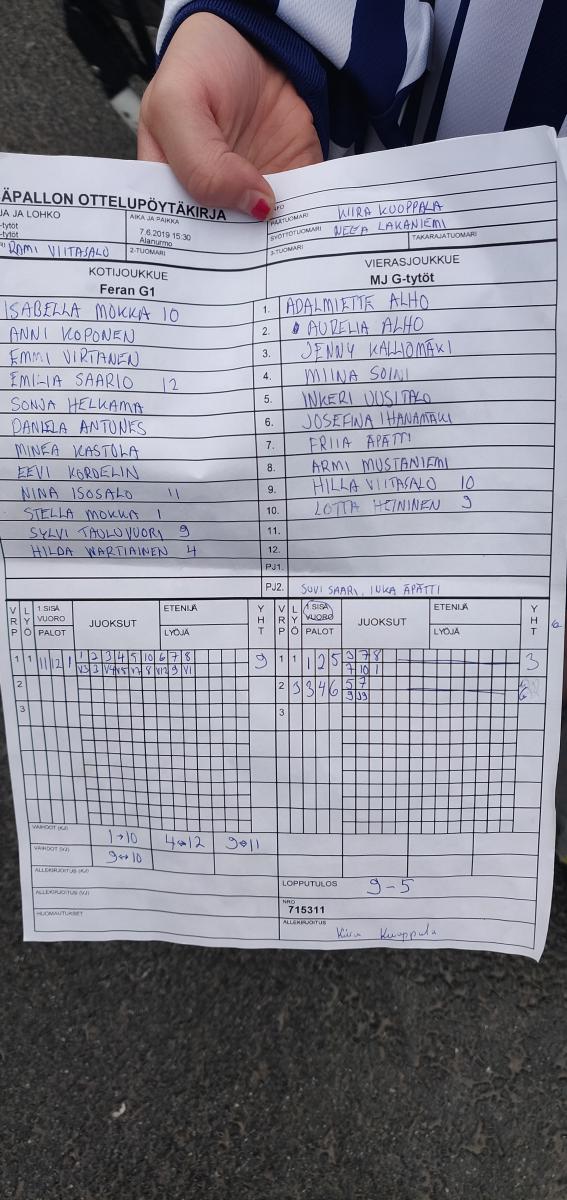 ÄPALLON OTTELUPÖYTÄKIRJA
JA JA LOHKO
-tytöt
-tytöt
AIKA JA PAIKKA
7.6.2019 15:30
Alanurmo
PÄÄTUOMARI KIIRA KUOPPALA
SYÖTTÖTUOMARI NEEA LAKANIEMI
RAMI VIITASALO
2-TUOMARI
3-TUOMARI
TAKARAJATUOMARI
KOTIJOUKKUE
Feran G1
VIERASJOUKKUE
MJ G-tytöt
ISABELLA MOKKA 10 1. ADALMIETTE ALHO
ANNI KOPONEN 2. AURELIA ALHO
EMMI VIRTANEN 3. JENNY KALLIOMÄKI
EMILIA SAARIO 12 4. MIINA SOINI
SONJA HELKAMA 5. INKERI UUSITALO
DANIELA ANTUNES 6. JOSEFINA IHANAMÄKI
MINEA KASTOLA 7. FRIIA ÄPÄTTI
EEVI KORDELIN 8. ARMI MUSTANIEMI
NINA ISOSALO 11 9. HILLA VIITASALO 10
STELLA MOKKA 1 10. LOTTA HEININEN 9
SYLVI TAULUVUORI 9 11.
HILDA WARTIAINEN 4 12.
PJ1.
PJ2. SUVI SAARI, INKA ÄPÄTTI
VRP LYÖ 1 SISÄ VUORO PALOT JUOKSUT ETENIJÄ LYÖJÄ YHT
VRP LYÖ 1 SISÄ VUORO PALOT JUOKSUT ETENIJÄ LYÖJÄ YHT
1 1 11 12 1 1 2 3 4 5 10 6 7 8 9
1 1 1 2 5 3 7 8 3
7 10 1
2
2 9 3 4 6 5 7
9
3
3
VAIHDOT (KJ) 1→10 4↔12 9↔11
VAIHDOT (VJ) 9↔10
ALLEKIRJOITUS (KJ)
ALLEKIRJOITUS (VJ)
HUOMAUTUKSET
LOPPUTULOS 9-5
NRO
715311
ALLEKIRJOITUS
Kiira Kuoppala